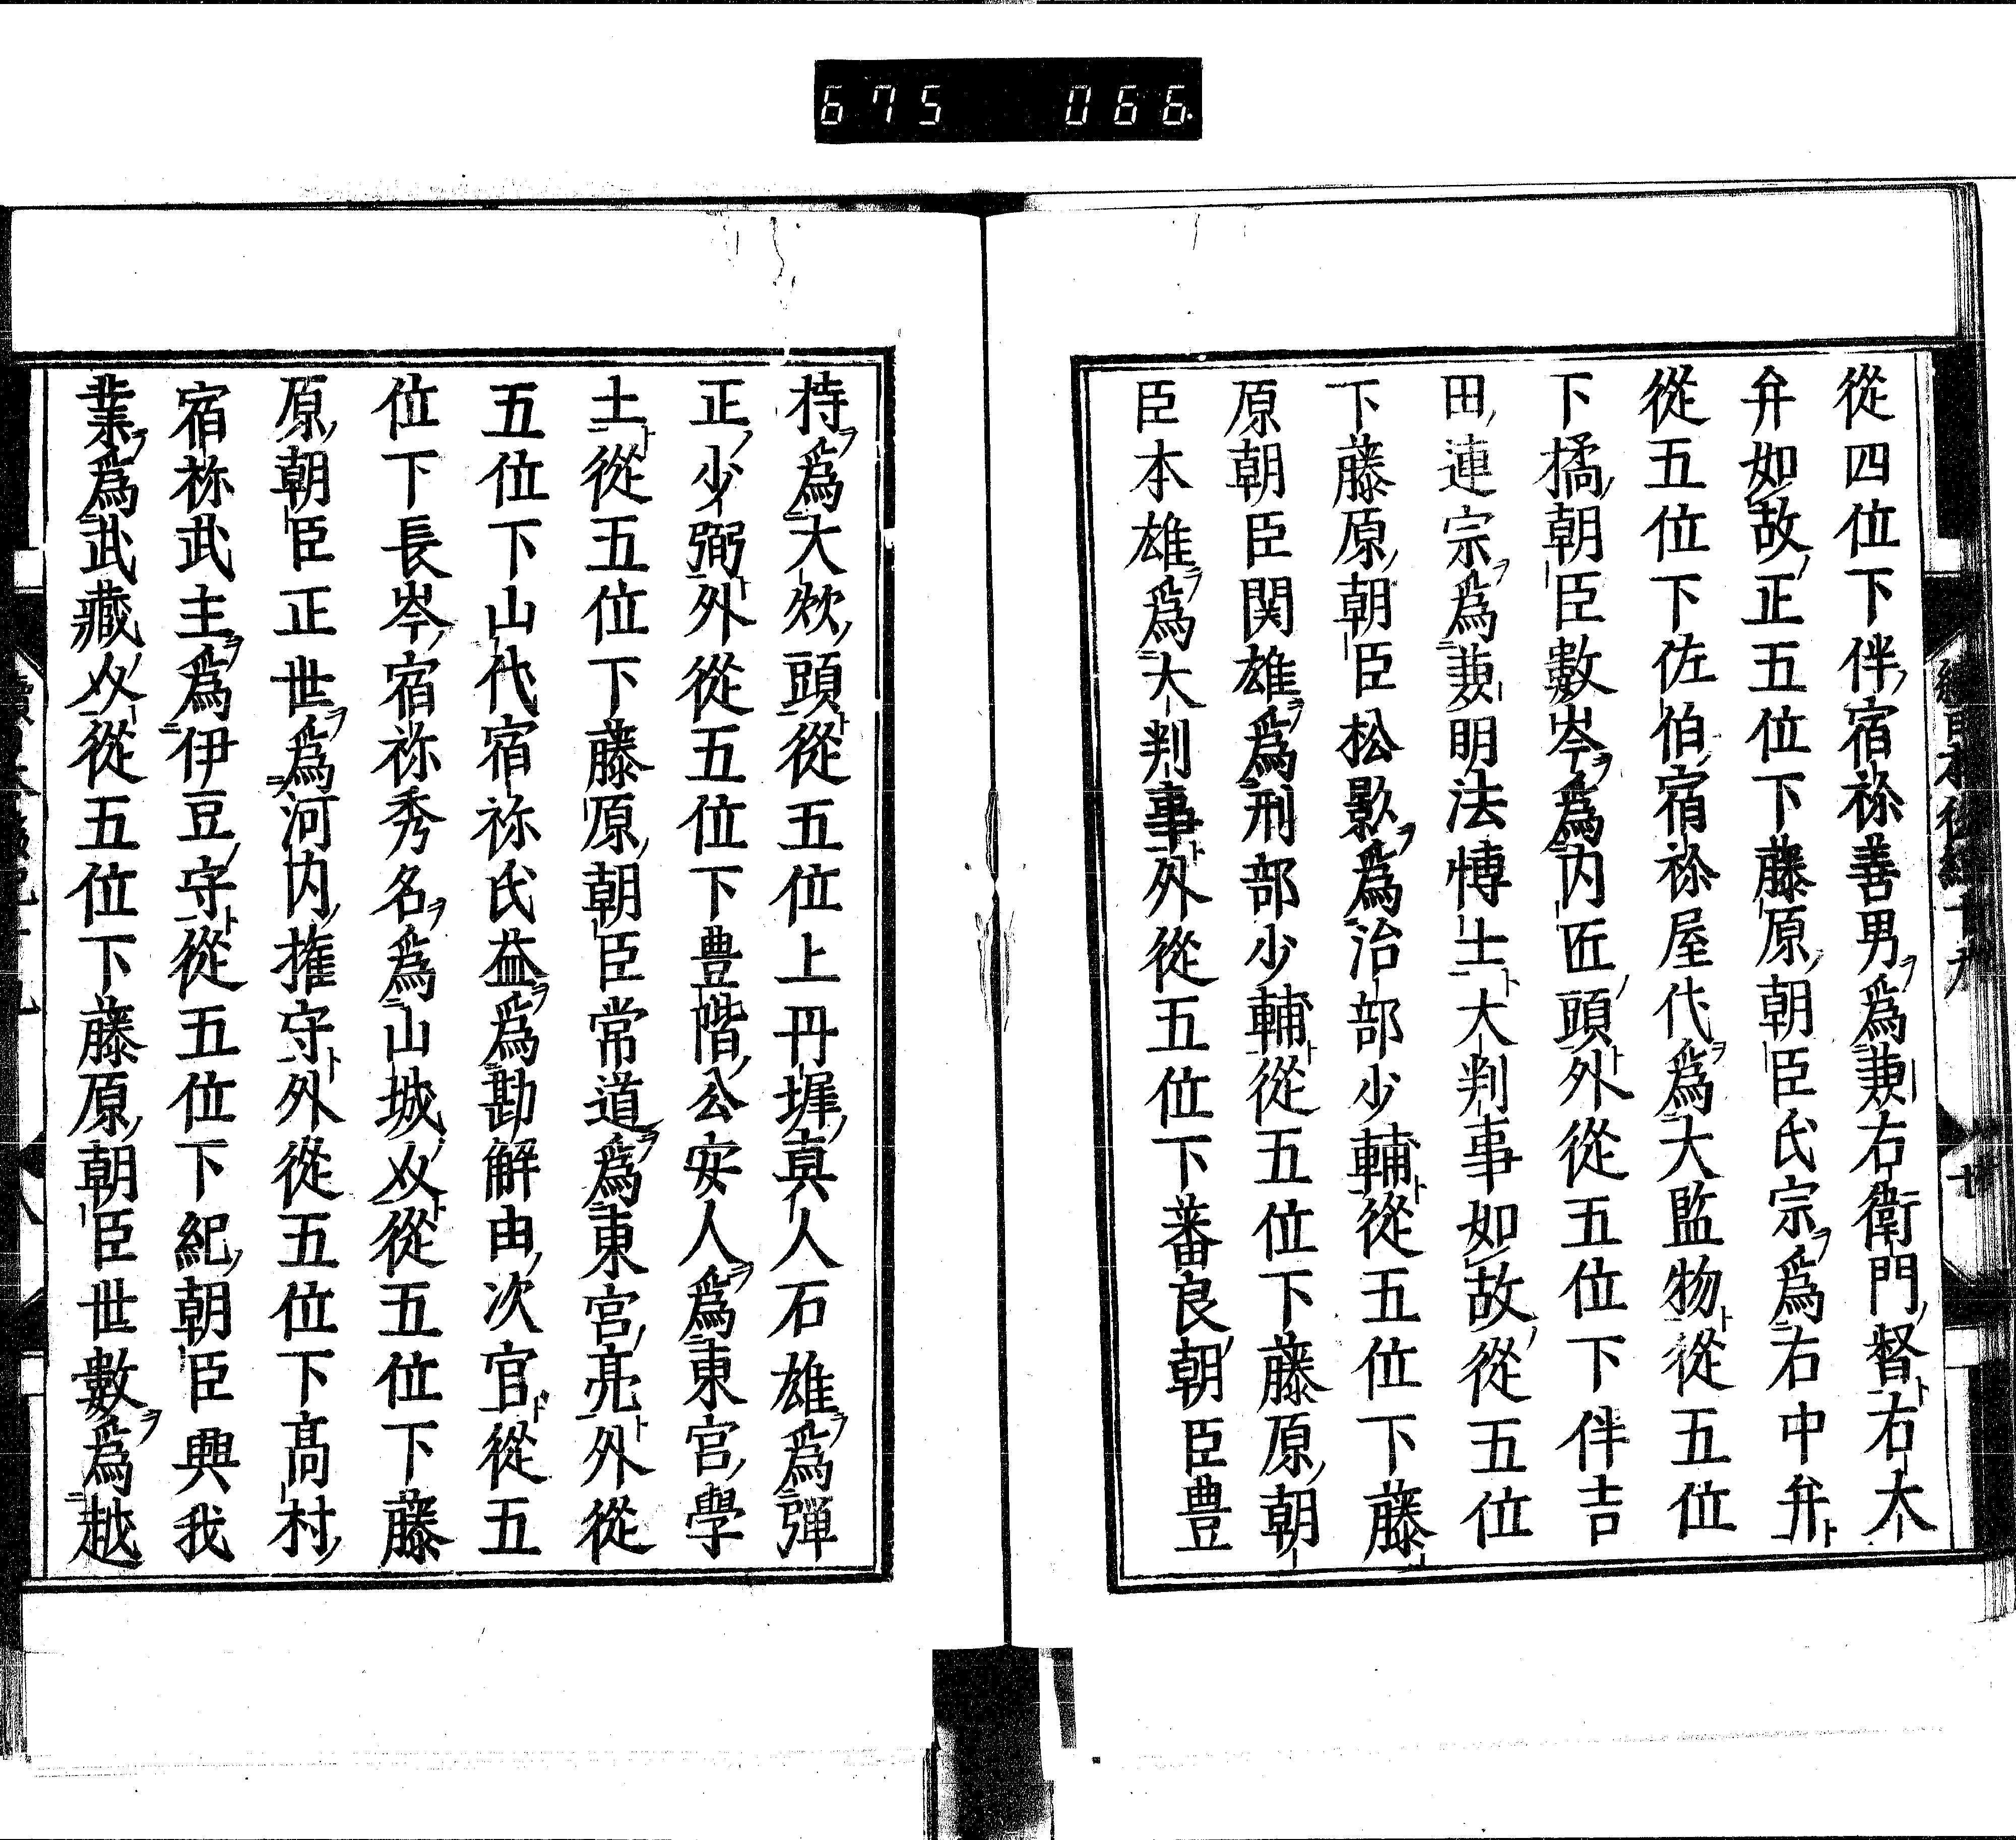 675 066
從四位下伴宿祢善男爲兼右衛門督右大
弁如故正五位下藤原朝臣氏宗爲右中弁
從五位下佐伯宿祢屋代爲大監物從五位
下橘朝臣數岑爲内匠頭外從五位下伴吉
田連宗爲兼明法博士大判事如故從五位
下藤原朝臣松影爲治部少輔從五位下藤
原朝臣関雄爲刑部少輔從五位下藤原朝
臣本雄爲大判事外從五位下蕃良朝臣豊
持爲大炊頭從五位上丹墀真人石雄爲弾
正少弼外從五位下豊階公安人爲東宮學
士從五位下藤原朝臣常道爲東宮亮外從
五位下山代宿祢氏益爲勘解由次官從五
位下長岑宿祢秀名爲山城介從五位下藤
原朝臣正世爲河内權守外從五位下高村
宿祢武主爲伊豆守從五位下紀朝臣興我
業爲武藏介從五位下藤原朝臣世數爲越